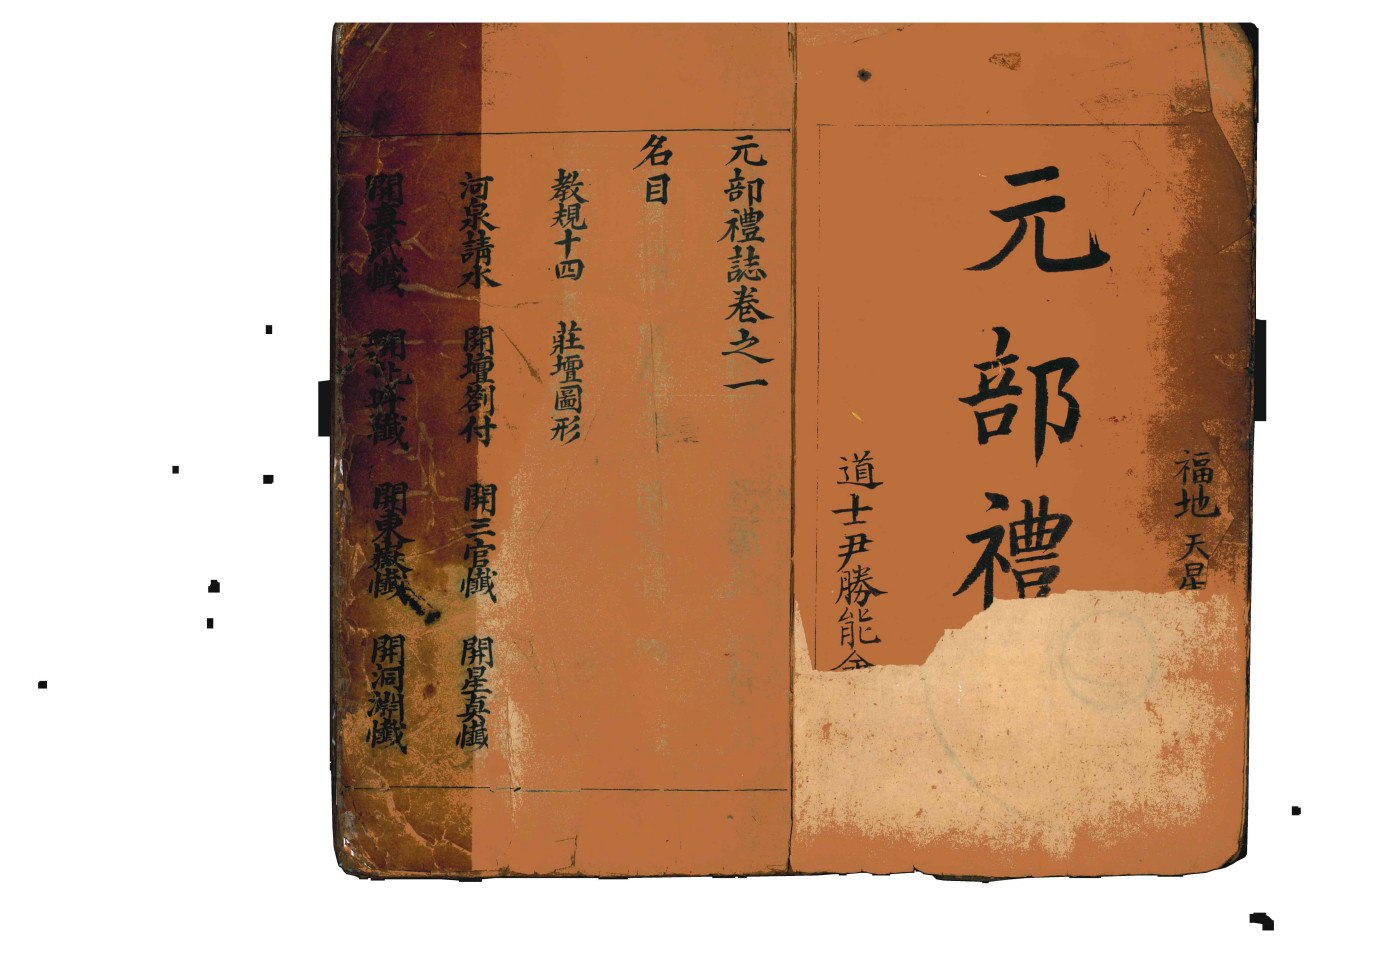 福地 天星
元部禮
道士尹勝能
元部禮誌卷之一
名目
教規十四 莊壇圖形
河泉請水 開壇劄付 開三官懺 開星真懺
開東嶽懺 開洞淵懺